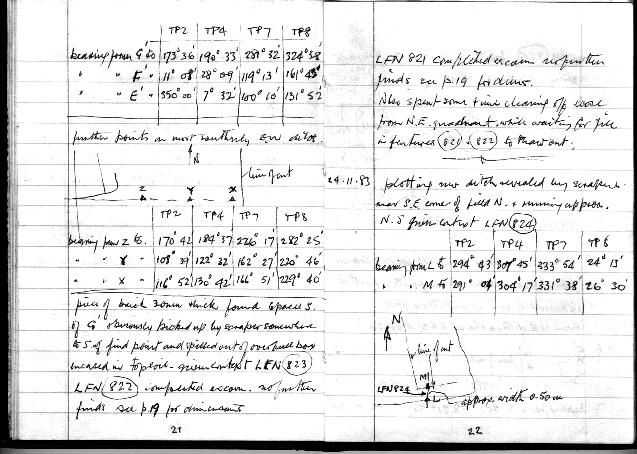 TP2 TP4 TP7 TP8
bearing from G' to 173° 36' 190° 33' 281° 32' 324° 38'
" " F' " 11° 08' 28° 09' 119° 13' 161° 45'
" " E' " 350° 00' 7° 32' 100° 10' 131° 52'
further points on most southerly EW ditch.
N
line of cut
Z Y X
TP2 TP4 TP7 TP8
bearing from Z to. 170° 42 184° 37 226° 17' 282° 25'
" " Y " 108° 39 122° 32 162° 27' 220° 46'
" " X " 116° 52' 130° 42' 166° 51' 229° 40'
piece of brick 30mm thick found 6 paces S.
of G obviously picked up by scraper somewhere
to S. of find point and spilled out of over full box
incased in topsoil - given context LFN 823
LFN 822 completed excavn. no further
finds see p.19 for dimensions
21
LFN 821 completed excavn no further
finds see p.19 for dimns.
Also spent some time cleaning off loose
from N.E. quadrant, while waiting for fill
in features 821 + 822 to thaw out.
24.11.83
plotting new ditch revealed by scraper
near S.E. corner of field N. + running approx.
N.S given context LFN 824
TP2 TP4 TP7 TP8
bearing from L to 294° 43' 307° 45' 333° 54' 24° 13'
" " M to 291° 04' 304° 17' 331° 38' 26° 30'
N
line of cut
M
LFN 824
L
approx. width 0.50m
22